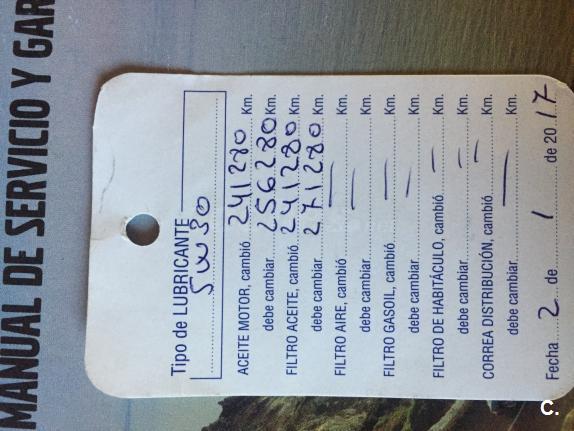 MANUAL DE SERVICIO Y GAR
Tipo de LUBRICANTE
5W30
ACEITE MOTOR, cambió 241280 Km.
debe cambiar 256280 Km.
FILTRO ACEITE, cambió 241280 Km.
debe cambiar 271280 Km.
FILTRO AIRE, cambió — Km.
debe cambiar — Km.
FILTRO GASOIL, cambió — Km.
debe cambiar — Km.
FILTRO DE HABITÁCULO, cambió — Km.
debe cambiar — Km.
CORREA DISTRIBUCIÓN, cambió — Km.
debe cambiar — Km.
Fecha 2 de 1 de 2017
C.